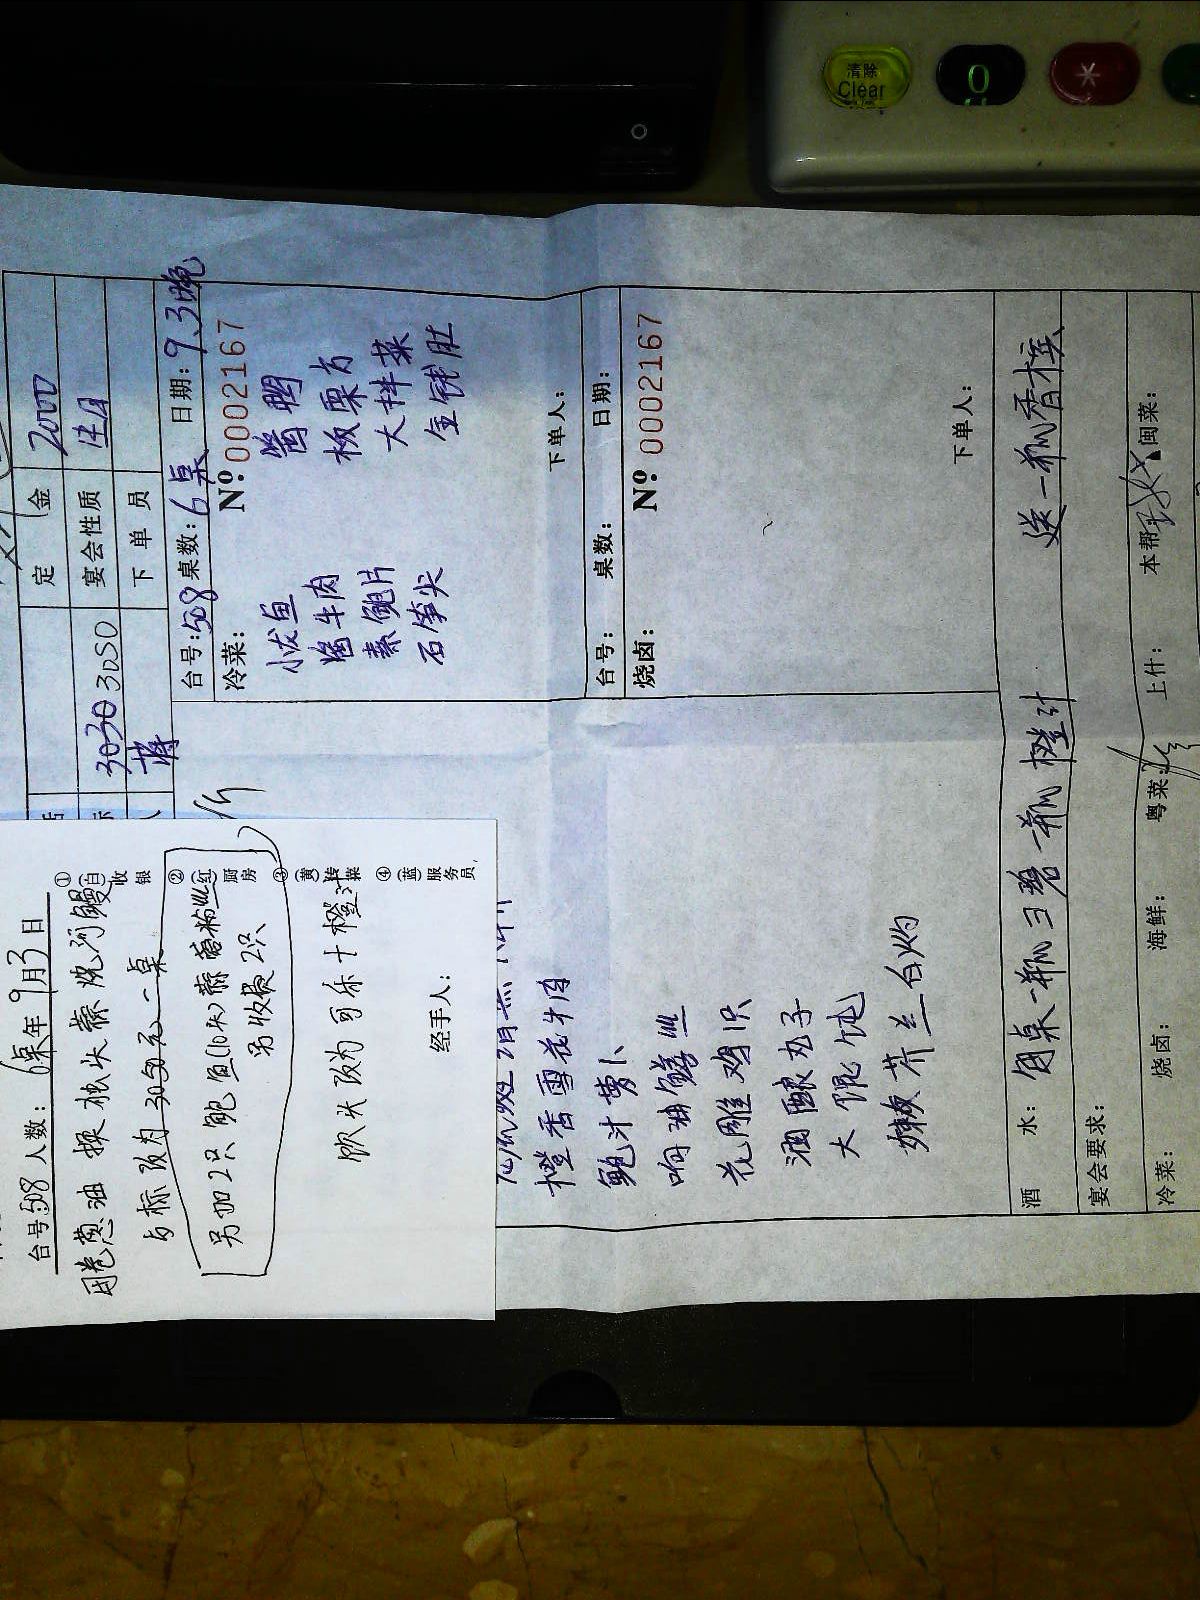 清除
Clear
0
*
定金 2000
宴会性质
下单员
3030 3050
蒋
台号: 508 桌数: 6桌 日期: 9.3晚
冷菜: Nº 0002167
酱鸭
酱牛肉 板栗
素鲍片 大拌菜
石笋尖 金钱肚
下单人:
台号: 桌数: 日期:
烧卤: Nº 0002167
下单人:
台号: 508 人数: 6桌 年 9月3日
葱油 换 独头蒜烧河鳗
与标改为 3050元一桌
另加2只鲍鱼(10头)蒜蓉粉丝
另收费2只
饮头改为可乐+橙汁
经手人:
①(白)收银
②(红)厨房
③(黄)传菜
④(蓝)服务员
橙香雪花牛肉
鲍汁萝卜
响油鳝丝
花雕鸡
酒酿丸子
大馄饨
嫩芥兰白灼
酒水: 每桌一瓶 一瓶橙汁 送一瓶香槟
宴会要求:
冷菜: 烧卤: 海鲜: 粤菜: 上什: 本帮 闽菜: